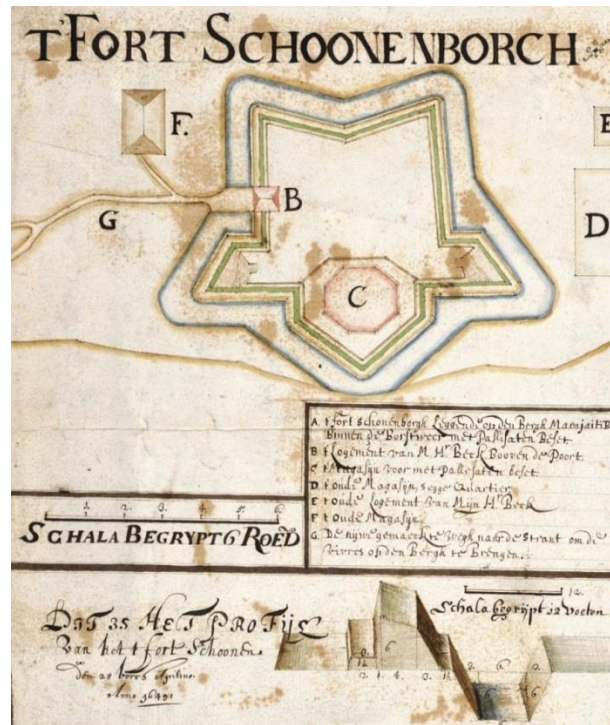 T'FORT SCHOONENBORCH
F.
E
G
B
D
C
A t fort Schonenborgh Leggende op den Bergh Marajaitiba
Binnen de Borstweer met Pallisaten Beset
B t Logement van M Hr Beek Booven de Poort
C t Magasijn voor met Pallesaten beset
D t oude Magasijn, Quartier
E t oude Logement van Mijn Hr Beek
F t oude Magasijn
G De nijwe gemaeckte Wegh naar de Strant om de
Vivres op den Bergh te Brengen.
1. 2. 3. 4. 5. 6
SCHALA BEGRYPT 6 ROED
12.
Schala begrijpt 12 Voeten
DIT IS HET PROFIJL
Van het t fort Schoonen
Anno 1649